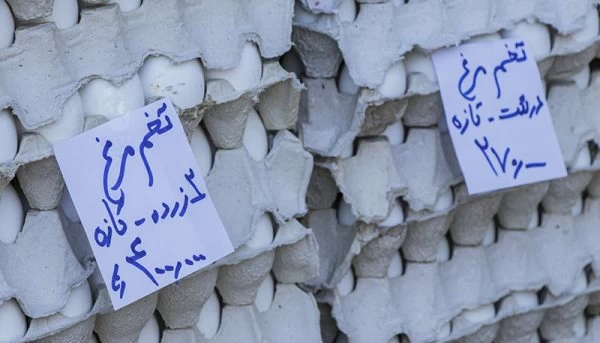 تخم مرغ
۲ زرده - تازه
۴۰۰,۰۰۰ ریا
تخم مرغ
درشت - تازه
۲۷۰,-